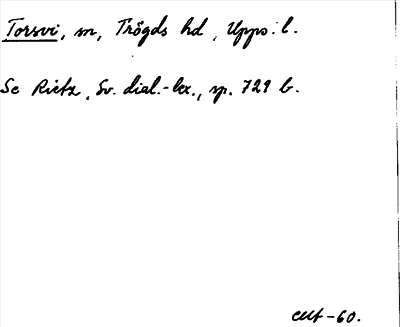 Torsvi, m, Trögds hd, Upps. l.
Se Rietz, Sv. dial.-lex., sp. 729 b.
-60.